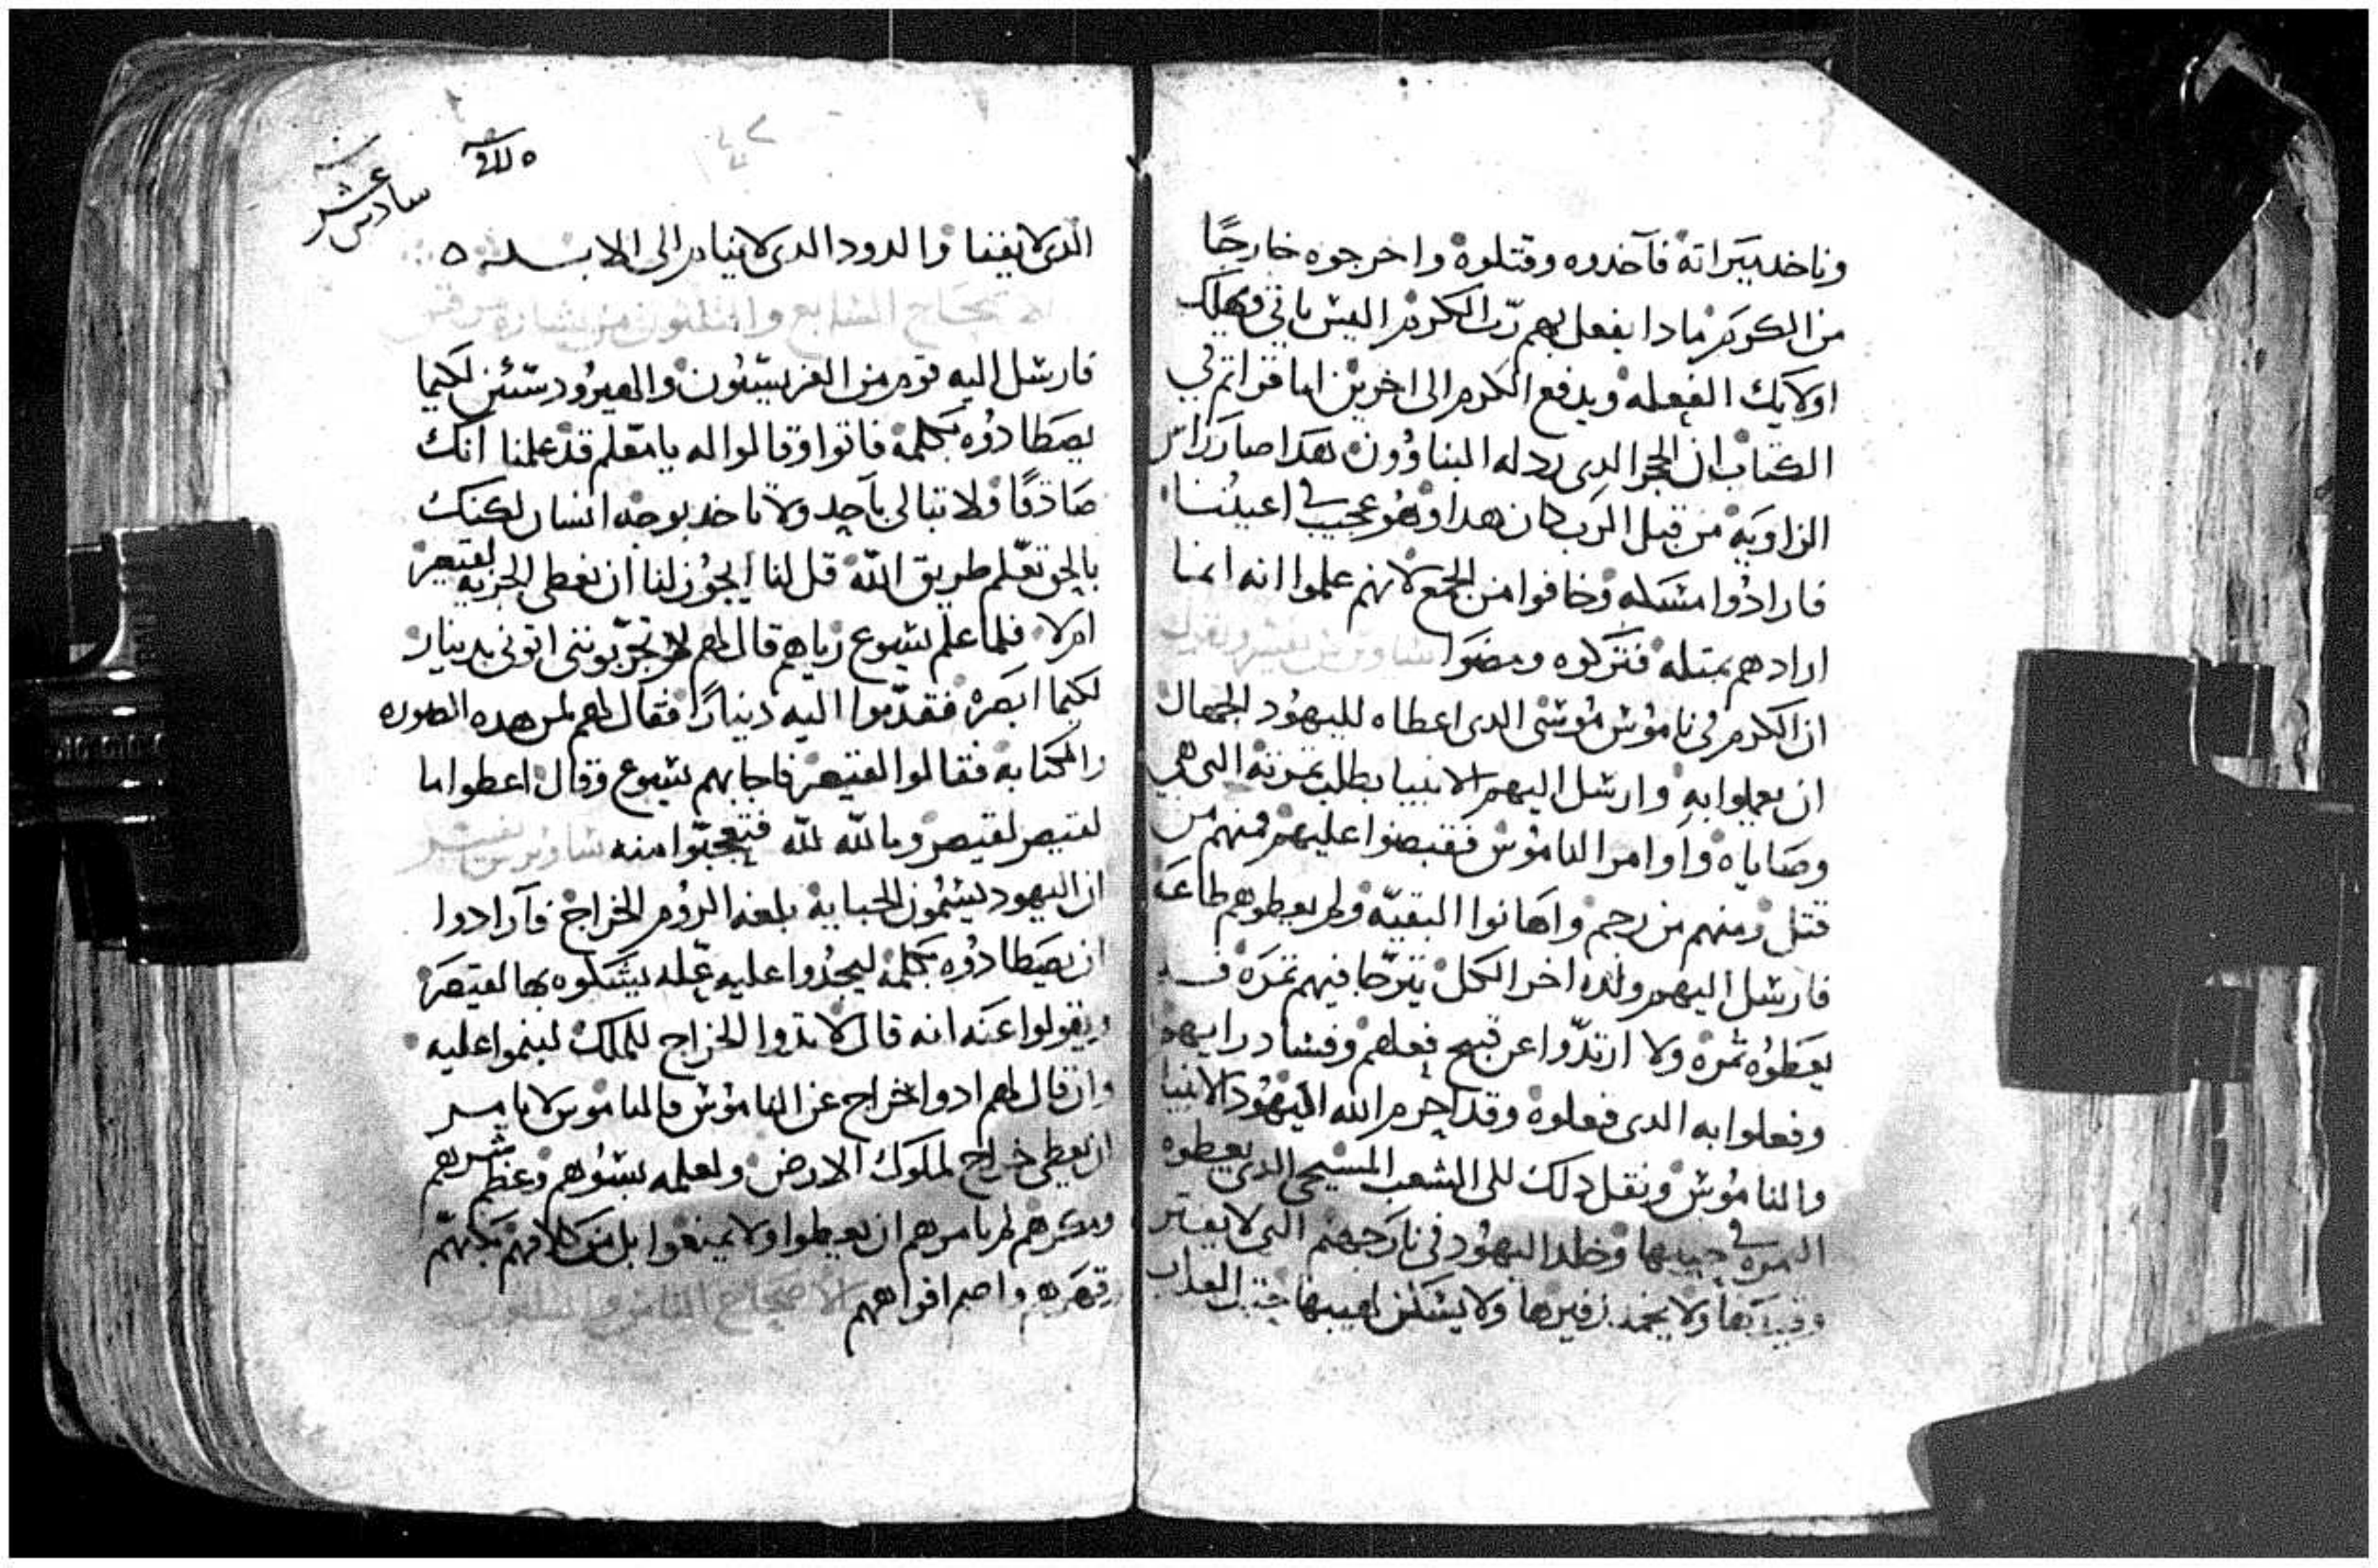 وناخد ميراته فآخدوه وقتلوه واخرجوه خارجًا
من الكرم مادا يفعل بهم رب الكرم اليس ياتي ويهلك
اولايك الفعله ويدفع الكرم الى اخرين اما قراتم في
الكتاب ان الحجر الدى رذله البناوون هدا صار راس
الزاويه من قبل الرب كان هدا وهو عجيب في اعيننا
فارادوا مسكه وخافوا من الجمع لانهم علموا انه انما
ارادهم بمتله فتركوه ومضوا
ان الكرم في ناموس موسى الدى اعطاه لليهود الجهال
ان يعملوا به وارسل اليهم الانبيا يطلب تمرته التى هي
وصاياه واوامر الناموس فقبضوا عليهم فمنهم من
قتل ومنهم من رجم واهانوا البقيه ولم يعطوهم طاعه
فارسل اليهم ولده اخر الكل يترجا فيهم تمره
يعطوه تمره ولا ارتدوا عن قبيح فعلهم وفساد رايهم
وفعلوا به الدى فعلوه وقد احرم الله اليهود الانبيا
والناموس ونقل دلك الى الشعب المسيحي الدى يعطوه
التمره في حينها وخلد اليهود في نار جهنم التى لا يفتر
ولا يخمد زفيرها ولا يسكن لهيبها حيت العداب
سادس عشر
الدى لا يفنا والدود الدى لا ينام الى الابد
الاصحاح السابع والتلتون من بشارة مرقس
فارسل اليه قوم من الفريسيون والهيرودسيين لكيما
يصطادوه بكلمه فاتوا وقالوا له يا معلم قد علمنا انك
صادقًا ولا تبالى باحد ولا تاخد بوجه انسان لكنك
بالحق تعلم طريق الله قل لنا ايجوز لنا ان نعطى الجزيه لقيصر
ام لا فلما علم يسوع رياهم قال لهم لم تجربوننى اتونى بدينار
لكيما ابصره فقدموا اليه دينارًا فقال لهم لمن هده الصوره
والكتابه فقالوا لقيصر فاجابهم يسوع وقال اعطوا ما
لقيصر لقيصر وما لله لله فتعجبوا منه
ان اليهود يسمون الجبايه بلغه الروم الخراج فآرادوا
ان يصطادوه بكلمه ليجدوا عليه عله يشكوه بها لقيصر
ويقولوا عنه انه قال لا تدوا الخراج للملك لينموا عليه
وان قال لهم ادوا الخراج عن الناموس فالناموس لا يامر
ان يعطى خراج لملوك الارض ولعلمه بسوهم وعظم شرهم
ومكرهم لم يامرهم ان يعطوا ولا يمنعوا بل من كلامهم بكتهم
وقهرهم واصم افواههم الاصحاح التامن والتلتون